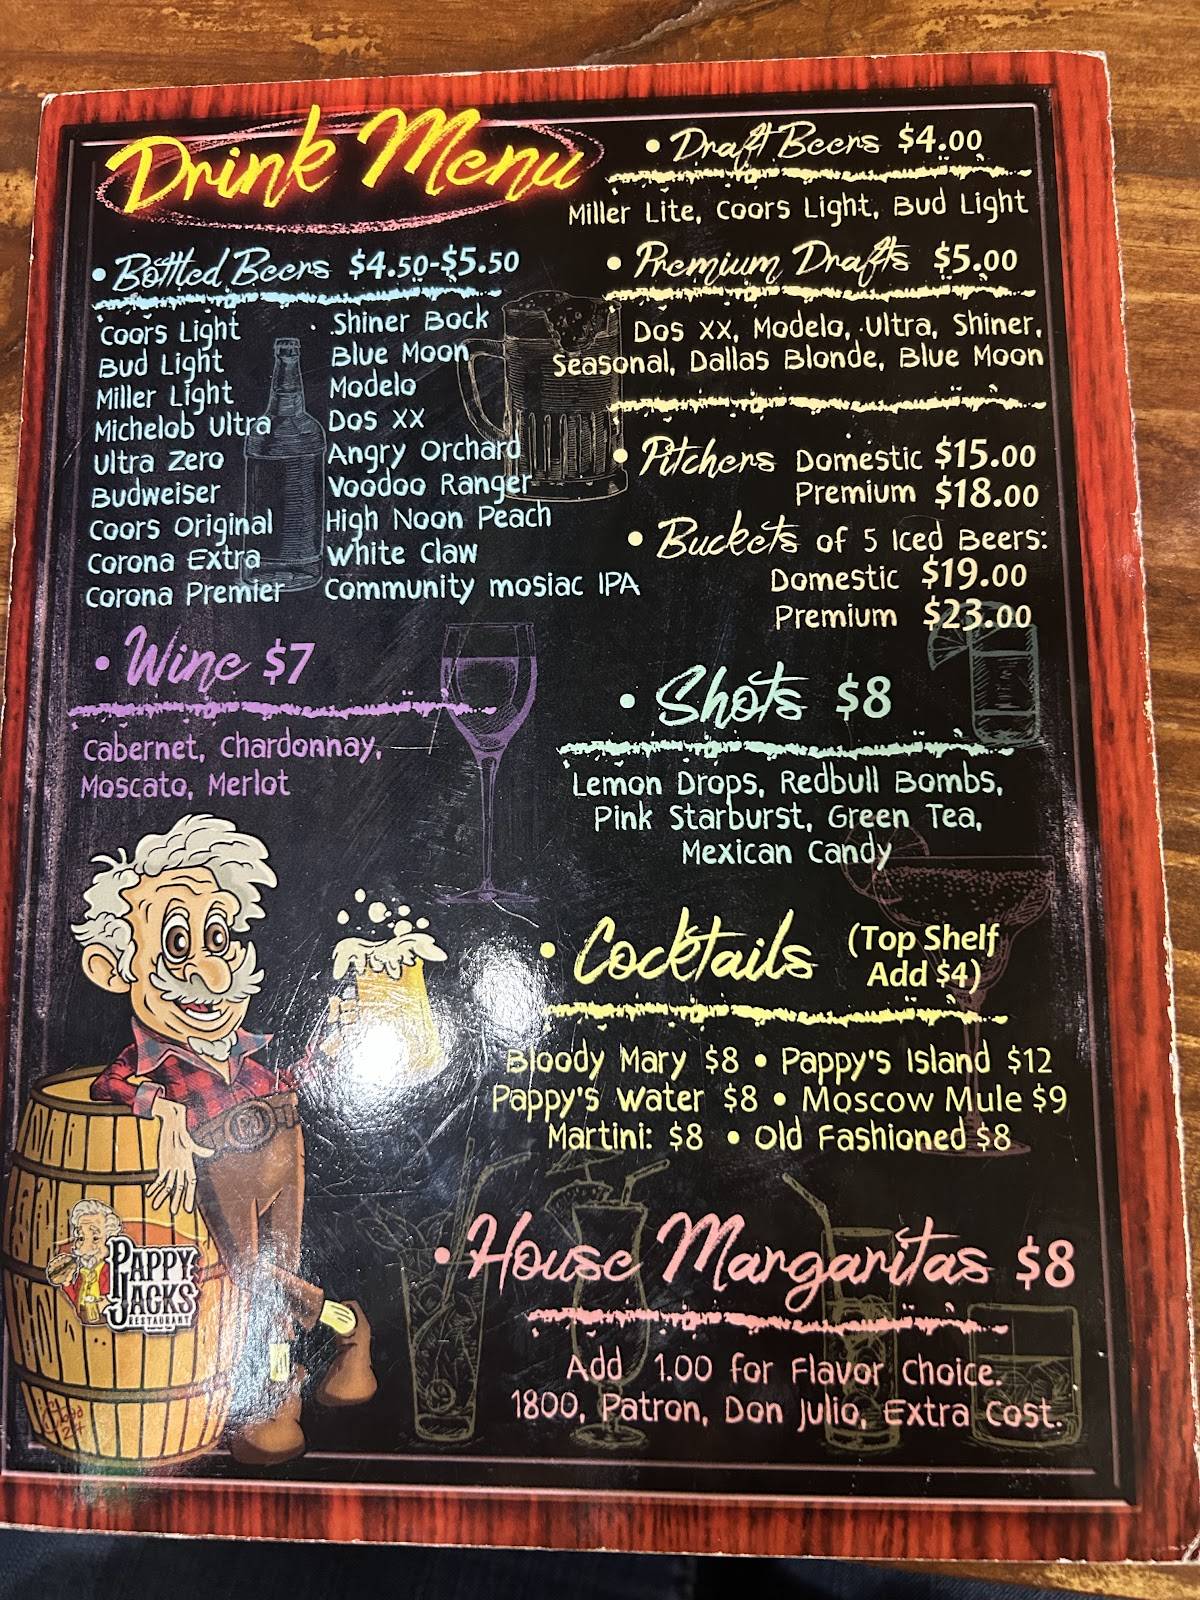 Drink Menu
• Bottled Beers $4.50-$5.50
Coors Light
Bud Light
Miller Light
Michelob Ultra
Ultra Zero
Budweiser
Coors Original
Corona Extra
Corona Premier
Shiner Bock
Blue Moon
Modelo
Dos XX
Angry Orchard
Voodoo Ranger
High Noon Peach
White Claw
Community mosiac IPA
• Wine $7
Cabernet, Chardonnay,
Moscato, Merlot
• Draft Beers $4.00
Miller Lite, Coors Light, Bud Light
• Premium Drafts $5.00
Dos XX, Modelo, Ultra, Shiner,
Seasonal, Dallas Blonde, Blue Moon
• Pitchers Domestic $15.00
Premium $18.00
• Buckets of 5 Iced Beers:
Domestic $19.00
Premium $23.00
• Shots $8
Lemon Drops, Redbull Bombs,
Pink Starburst, Green Tea,
Mexican Candy
• Cocktails (Top Shelf
Add $4)
Bloody Mary $8 • Pappy's Island $12
Pappy's Water $8 • Moscow Mule $9
Martini: $8 • Old Fashioned $8
• House Margaritas $8
Add 1.00 for Flavor Choice.
1800, Patron, Don Julio, Extra Cost.
PAPPY
JACKS
RESTAURANT